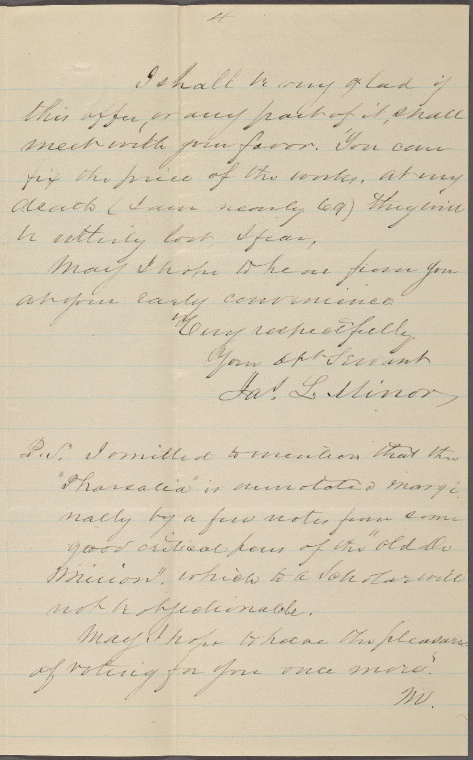 4
I shall be very glad if
this offer, or any part of it, shall
meet with your favor. You can
fix the price of the works. At my
death (I am nearly 69) they will
be utterly lost I fear,
May I hope to hear from you
at your early convenience
Very respectfully
Your obt Servant
Jas. L. Minor,
P.S. I omitted to mention that the
"Pharsalia" is annotated margi
nally by a few notes from some
good critical pens of the "Old Do
Minion", which to a Scholar will
not be objectionable.
May I hope to have the pleasure
of voting for you once more?
M.